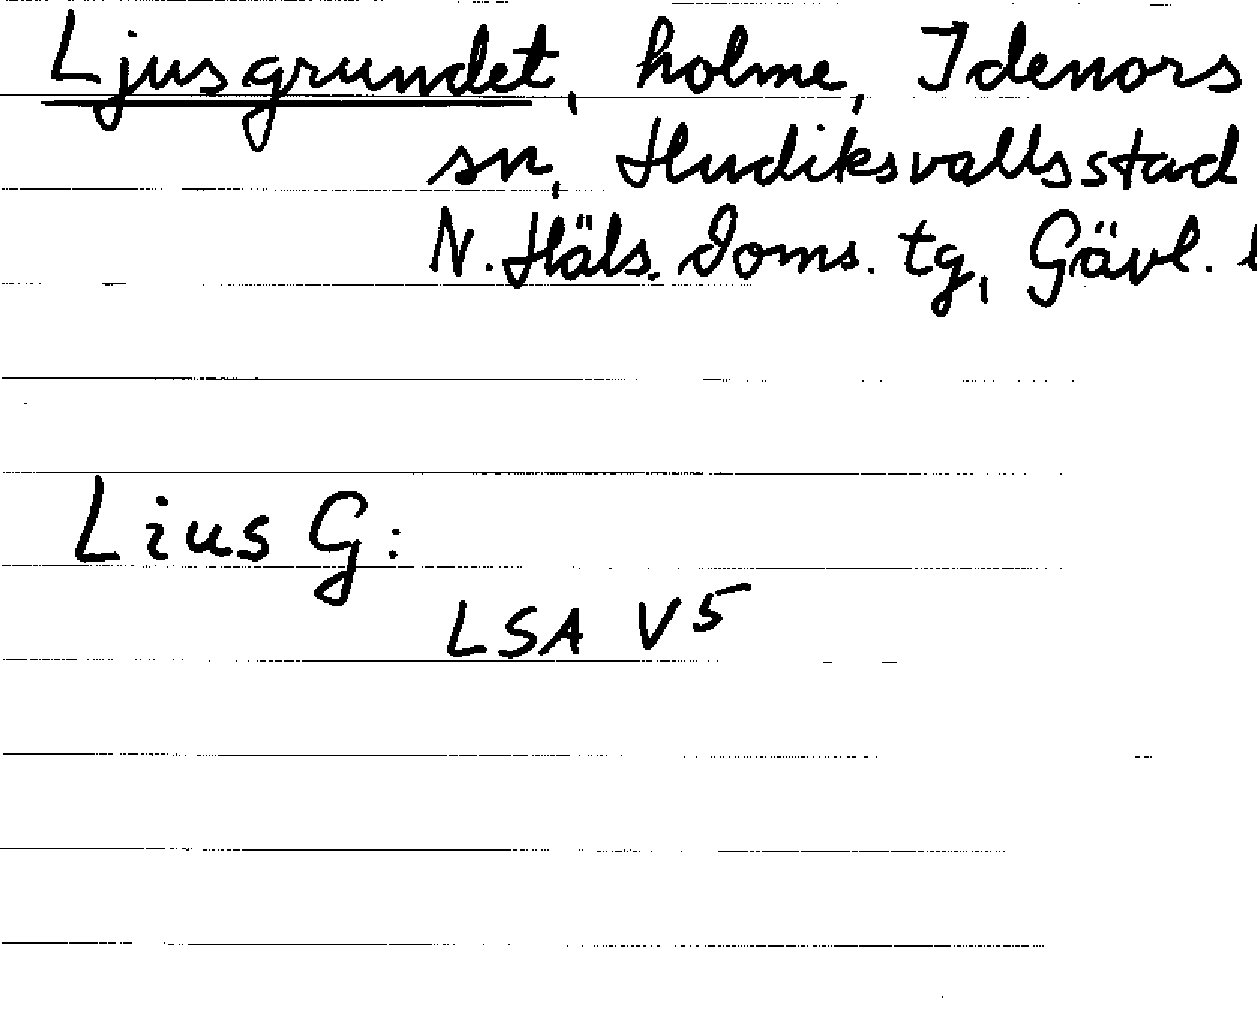 Ljusgrundet, holme, Idenors
sn, Hudiksvalls stad
N. Häls. doms. tg, Gävl.
Lius G:
LSA V5